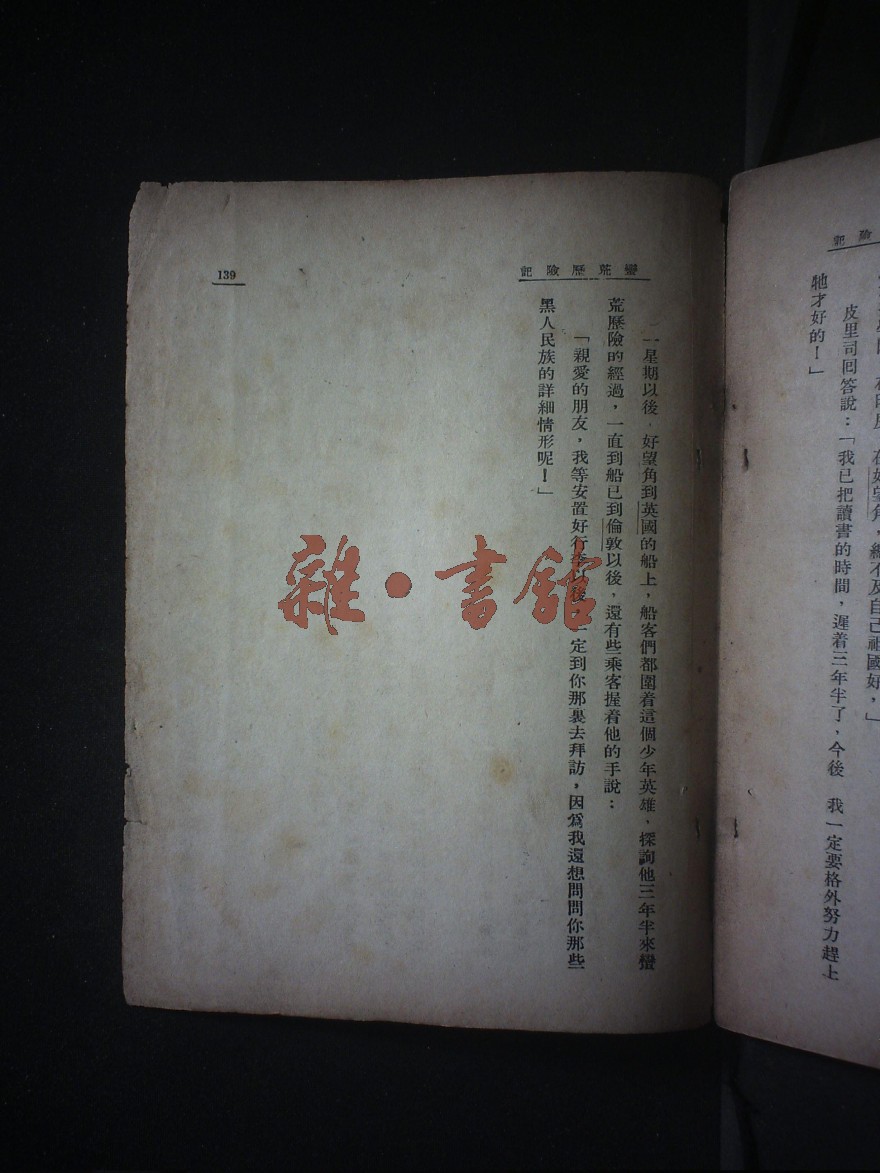 險記
在好望角，總不及自己祖國好，」
皮里司回答說：「我已把讀書的時間，遲着三年半了，今後 我一定要格外努力趕上
牠才好的！」
蠻荒歷險記
139
一星期以後，好望角到英國的船上，船客們都圍着這個少年英雄，探詢他三年半來蠻
荒歷險的經過，一直到船已到倫敦以後，還有些乘客握着他的手說：
「親愛的朋友，我等安置好行李以後，一定到你那裏去拜訪，因爲我還想問問你那些
黑人民族的詳細情形呢！」
雜·書館